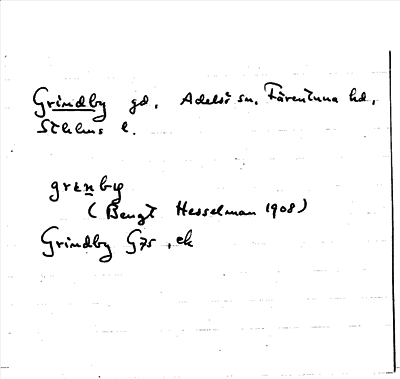 Grindby gd, Adelsö sn, Färentuna hd,
Sthlms l.
grɛnby
(Bengt Hesselman 1908)
Grindby G75, ek